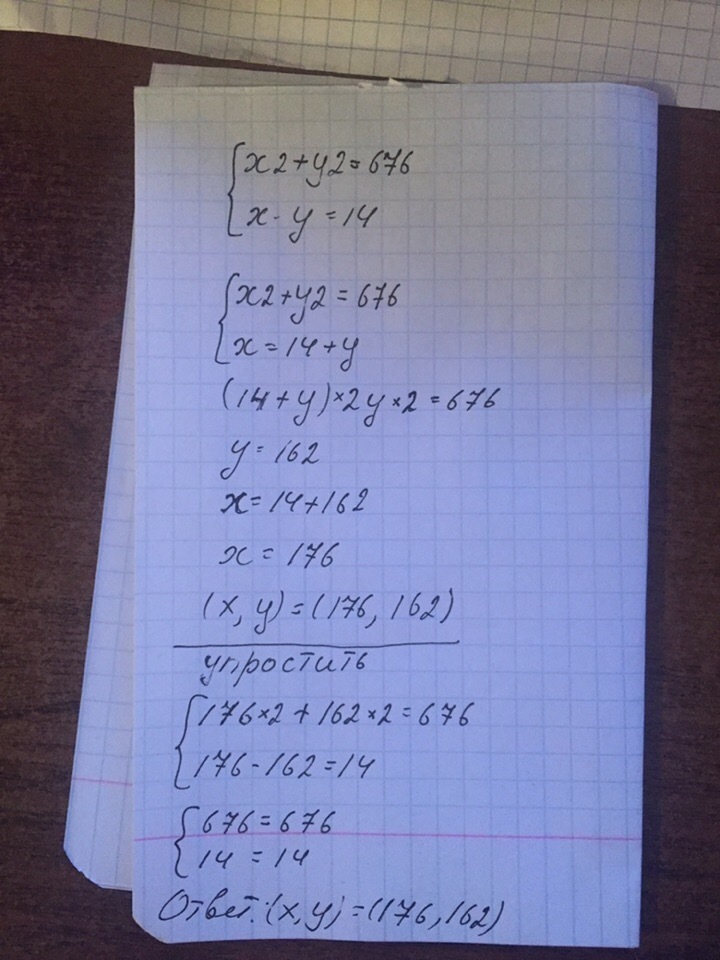 x2+y2=676
x-y=14
x2+y2=676
x=14+y
(14+y)×2y×2=676
y=162
x=14+162
x=176
(x,y)=(176,162)
упростить
176×2+162×2=676
176-162=14
676=676
14=14
Ответ:(x,y)=(176,162)